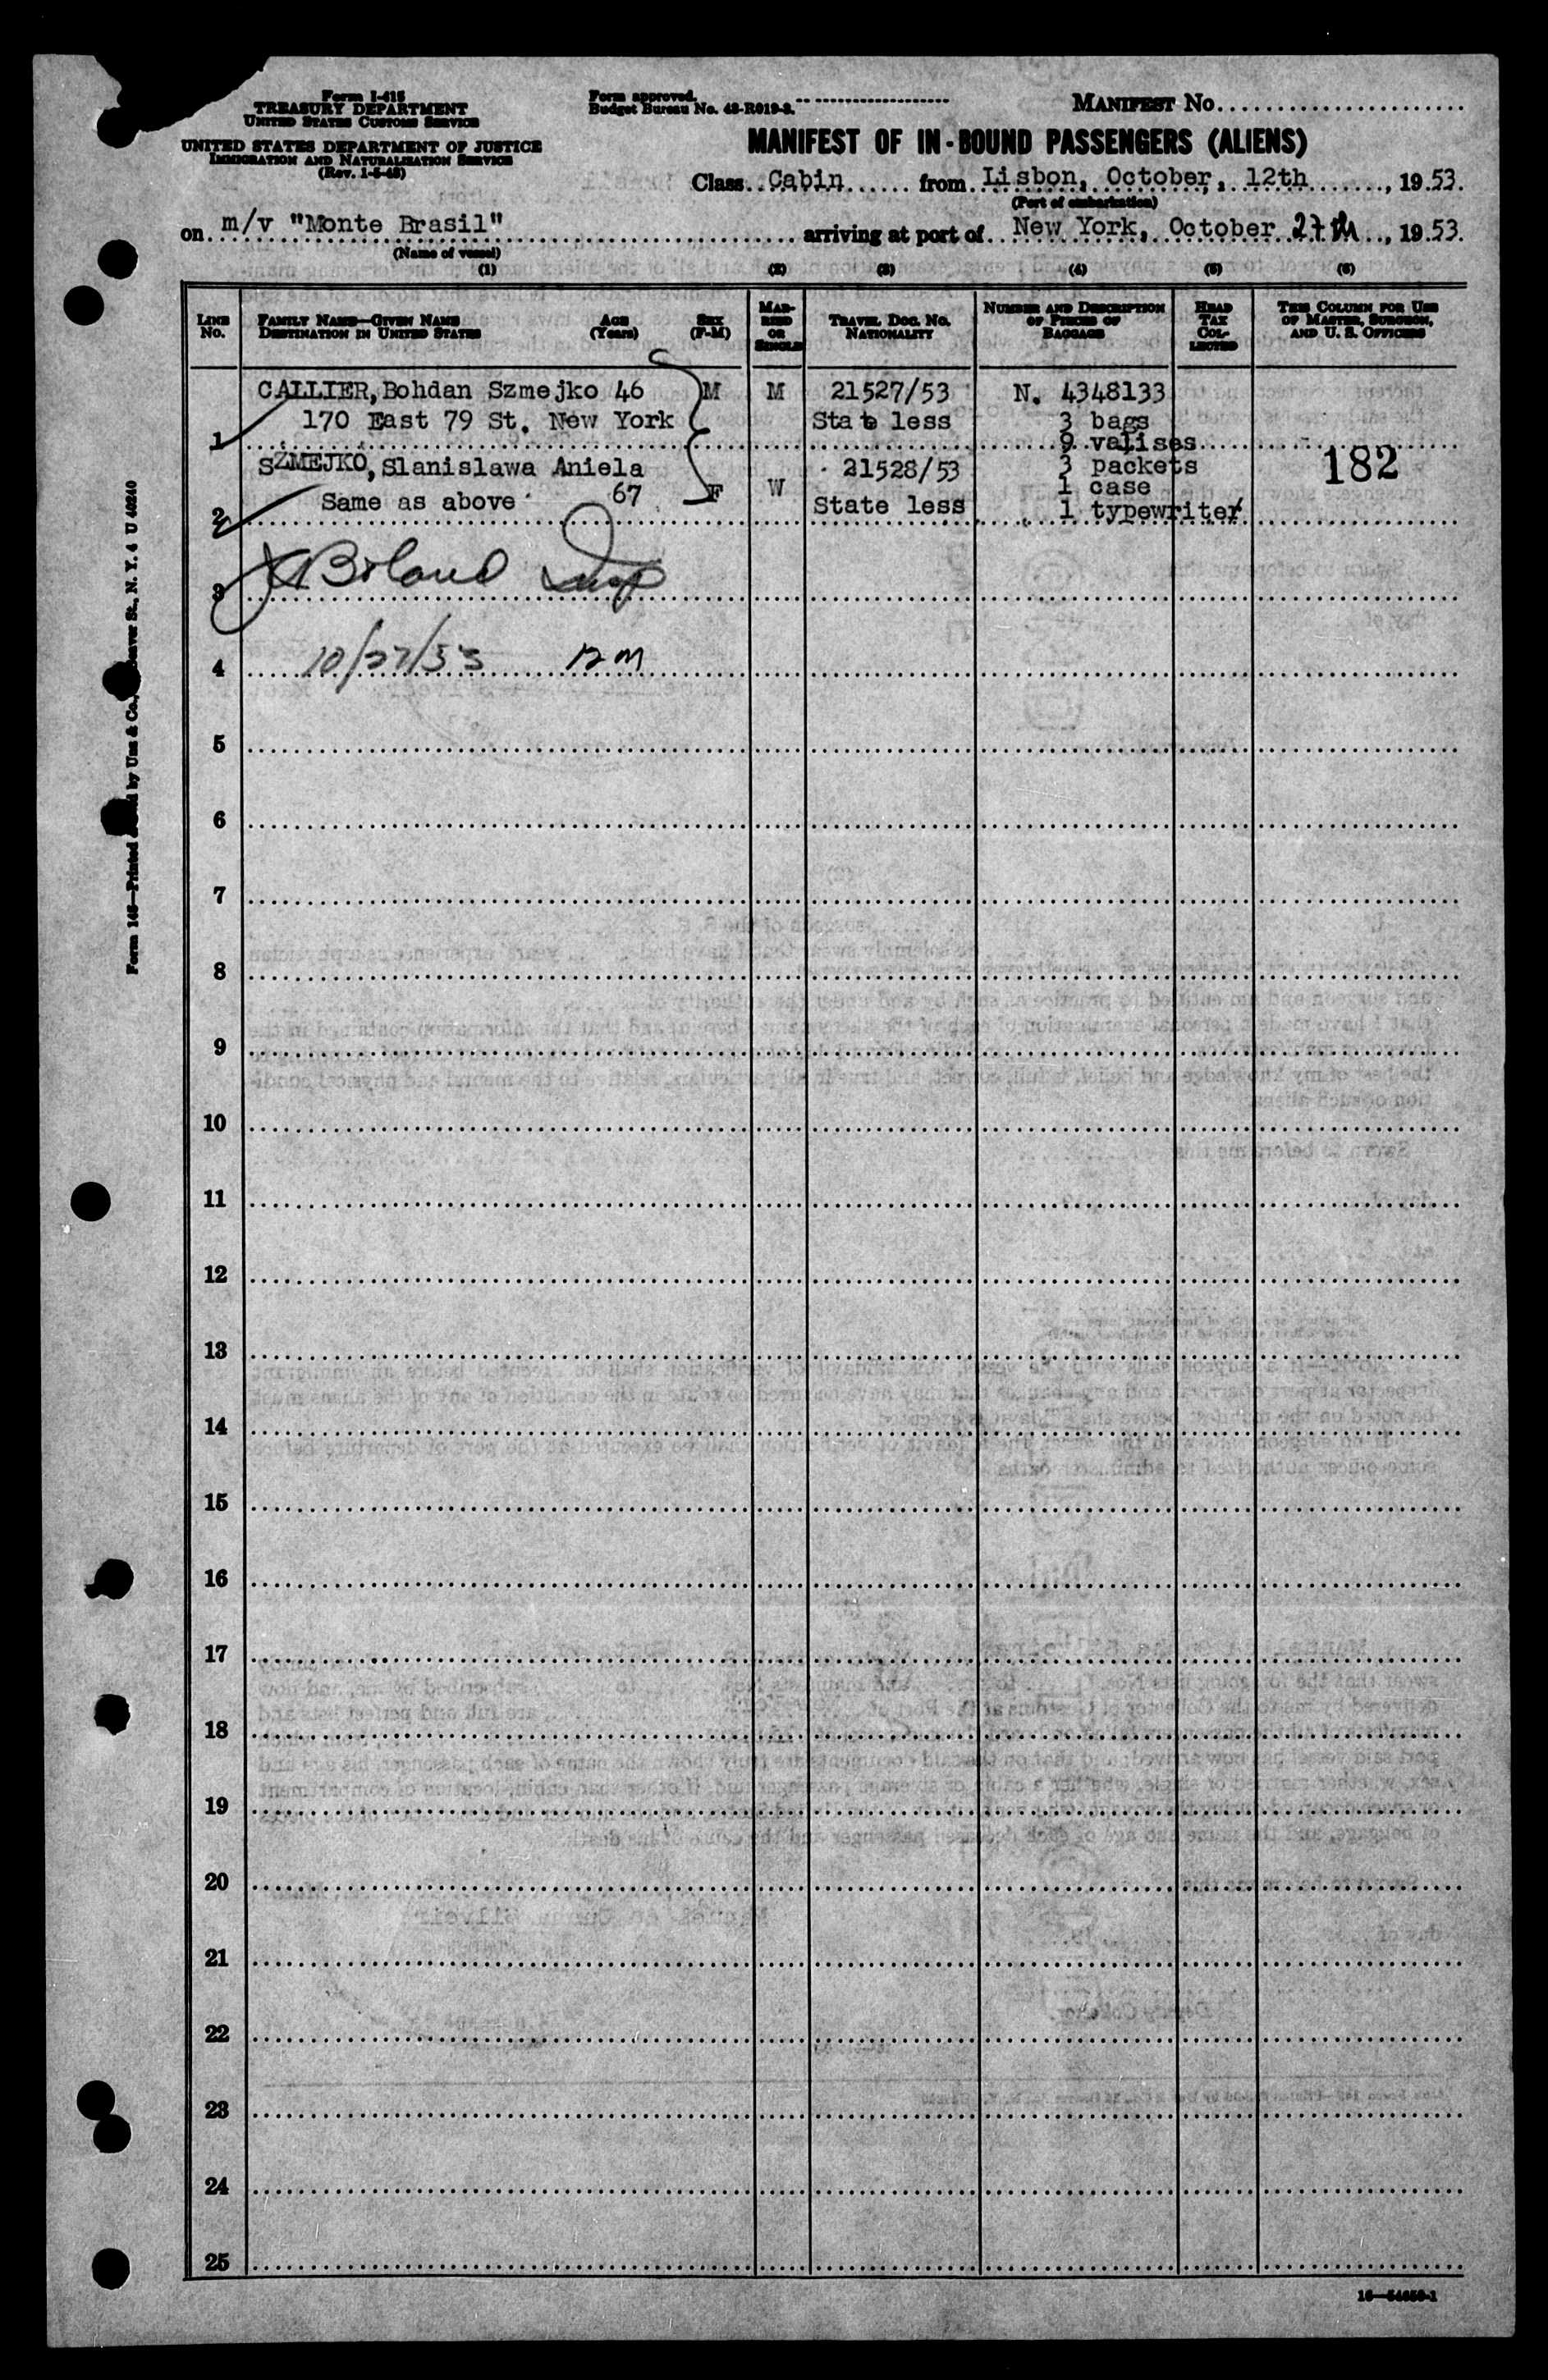 Form I-415
TREASURY DEPARTMENT
UNITED STATES CUSTOMS SERVICE
UNITED STATES DEPARTMENT OF JUSTICE
IMMIGRATION AND NATURALIZATION SERVICE
(Rev. 1-5-48)
Form approved.
Budget Bureau No. 43-R019-3.
MANIFEST No.
MANIFEST OF IN-BOUND PASSENGERS (ALIENS)
Class Cabin from Lisbon, October, 12th, 1953.
(Port of embarkation)
on m/v "Monte Brasil" arriving at port of New York, October 27th, 1953.
(Name of vessel)
(1) (2) (3) (4) (5) (6)
LINE No. FAMILY NAME—GIVEN NAME DESTINATION IN UNITED STATES AGE (Years) SEX (F-M) MARRIED OR SINGLE TRAVEL DOC. NO. NATIONALITY NUMBER AND DESCRIPTION OF PIECES OF BAGGAGE HEAD TAX COLLECTED THIS COLUMN FOR USE OF MASTER, SURGEON, AND U. S. OFFICERS
CALLIER, Bohdan Szmejko 46 M M 21527/53 N. 4348133
170 East 79 St. New York State less 3 bags
1 9 valises
SZMEJKO, Slanislawa Aniela 21528/53 3 packets 182
67 F W 1 case
2 Same as above State less 1 typewriter
3 Boland Insp
4 10/27/53
5
6
7
8
9
10
11
12
13
14
15
16
17
18
19
20
21
22
23
24
25
16—54650-1